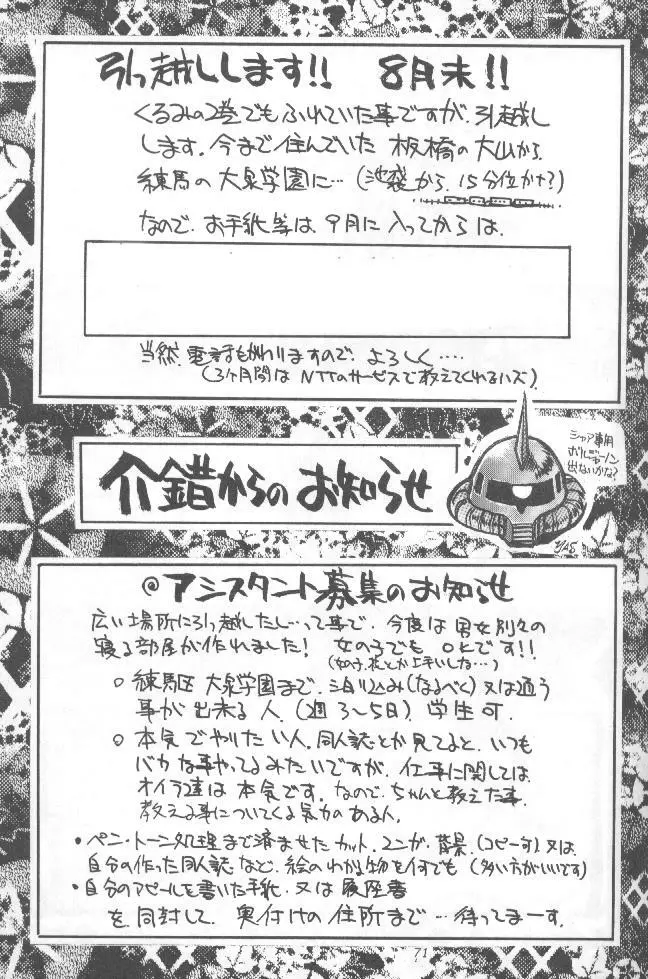 引っ越しします!! 8月末!!
くるみの2巻でもふれていた事ですが、引越し
します。今まで住んでいた 板橋の大山から、
練馬の大泉学園に…(池袋から、15分位かナ?)
なので、お手紙等は、9月に入ってからは、
当然、電話もかわりますので、よろしく‥‥
(3ヶ月間は NTTのサービスで教えてくれるハズ)
シャア専用
ポリジューノン
出ないかな?
介錯からのお知らせ
◎アシスタント募集のお知らせ
広い場所に引っ越したし…って事で、今度は男女別々の
寝る部屋が作れました! 女の子でも OKです!!
(女の子、花とか上手いしね…)
○ 練馬区 大泉学園まで、泊り込み(なるべく)又は通う
事が出来る人。(週3〜5日)学生可。
○ 本気でやりたい人。同人誌とか見てると、いつも
バカな事やってるみたいですが、仕事に関しては、
オイラ達は本気です。なので、ちゃんと教えた事、
教える事についてくる気力のある人。
・ペン・トーン処理まで済ませたカット、マンガ、背景、(コピー可)又は、
自分の作った同人誌など、絵のわかる物を何でも(多い方がいいです)
・自分のアピールを書いた手紙、又は履歴書
を、同封して、奥付けの住所まで…待ってまーす。
71